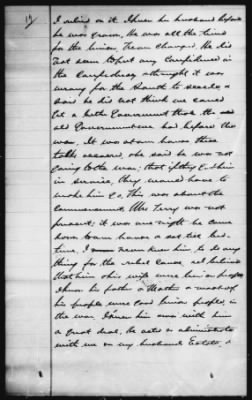 17
I relied on it. I knew her husband before
he was grown, He was all the time
for the Union, Never changed. He did
not seem to put any confidence in
the Confederacy & thought it was
wrong for the South to secede, &
said he did not think we could
get a better Government than the
old Government we had before the
war, It was at our house these
talks occurred, She said he was not
going to the war; that if they got him
in service, they would have to
make him go, This was about the
Commencement, Mrs Terry was not
present; it was one night he came
down to our house & sat till bed-
time, I never knew him to do any
thing for the rebel cause,
that him & his wife were Union people
I knew his father & Mother &
his people were good Union people, in
the war. I knew him
a great deal, He acted as administrator
with me on my husband Estate, &